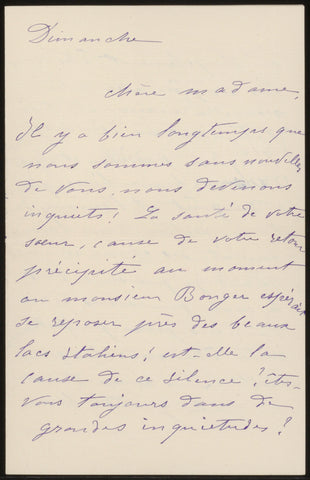 Dimanche
chère madame,
Il y a bien longtemps que
nous sommes sans nouvelles
de vous, nous devenons
inquiets! La santé de votre
sœur, cause de votre retour
précipité au moment
ou monsieur Bonger espérait
se reposer près des beaux
lacs italiens! est-elle la
cause de ce silence? êtes-
vous toujours dans de
grandes inquiétudes?